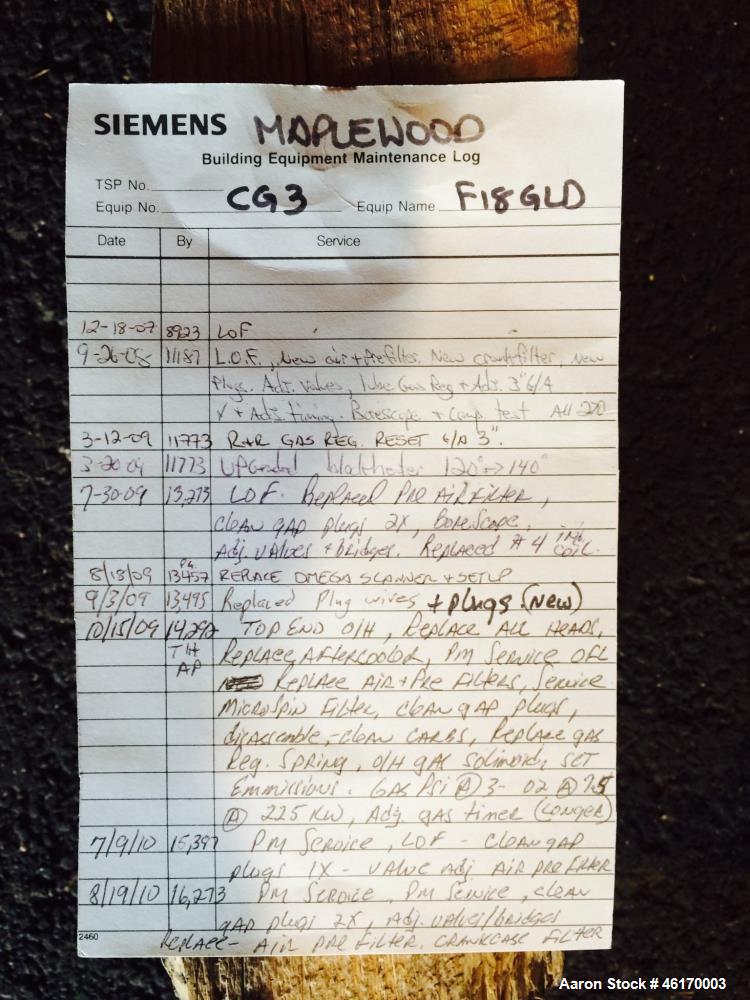 SIEMENS MAPLEWOOD
Building Equipment Maintenance Log
TSP No.
Equip No. CG3 Equip Name F18GLD
Date By Service
12-18-07 8923 LOF
9-26-08 11187 L.O.F., New air + Prefilter. New crankfilter, New
Plugs. Adj. Valves, Gas Reg + Adj. 3" G/A
✓ + Adj. timing. Borescope + Comp. test All 220
3-12-09 11773 R+R GAS REG. RESET G/A 3".
3-20-09 11773 UPGraded blockheater 120°→140°
7-30-09 13,273 LOF. Replaced Pre AirFilter,
clean gap plugs 2X, BoreScope,
Adj. Valves + bridges. Replaced #4 COIL.
8/13/09 PG 13457 REPLACE OMEGA SCANNER + SETUP
9/3/09 13,495 Replaced Plug wires + plugs (NEW)
10/15/09 14,292 TOP END O/H, Replace ALL HEADS,
TH Replace AFTERCOOLOR, PM Service OFL
AP Replace AIR + Pre Filters, Service
MicroSpin Filter, clean gap plugs,
disassemble, -clean CARBS, Replace gas
Reg. SPRING, O/H gas solinoid, SET
Emmissions. GAS PSI @ 3 - O2 @ 7.5
@ 225 KW, Adj. gas timer (LONGER)
7/9/10 15,397 PM Service, LOF - Clean gap
plugs 1X - VALVE Adj. AIR PRE FILTER
8/19/10 16,273 PM Service, PM Service, clean
gap plugs 2X, Adj. valves/bridges
2460 Replace - AIR PRE FILTER. CRANKCASE FILTER
Aaron Stock # 46170003